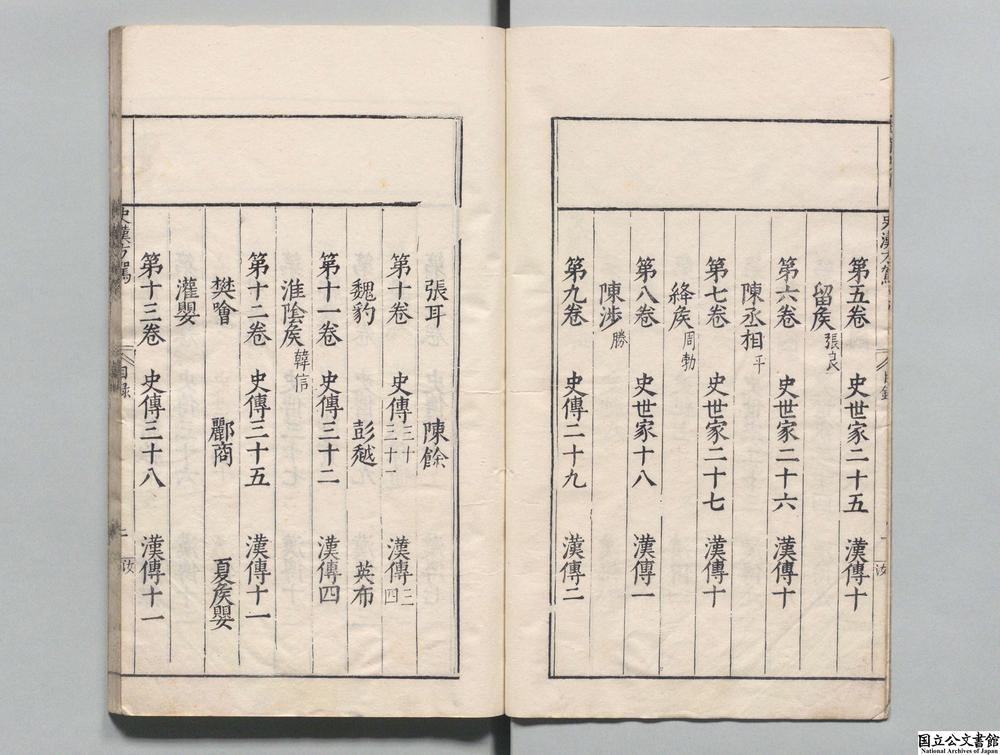 第五卷 史世家二十五 漢傳十
留矦張良
第六卷 史世家二十六 漢傳十
陳丞相平
第七卷 史世家二十七 漢傳十
絳矦周勃
第八卷 史世家十八 漢傳一
陳涉勝
第九卷 史傳二十九 漢傳二
張耳 陳餘
第十卷 史傳三十 三十一 漢傳三 四
魏豹 彭越 英布
第十一卷 史傳三十二 漢傳四
淮陰矦韓信
第十二卷 史傳三十五 漢傳十一
樊噲 酈商 夏矦嬰
灌嬰
第十三卷 史傳三十八 漢傳十一
史漢方駕
目錄
二
国立公文書館
National Archives of Japan